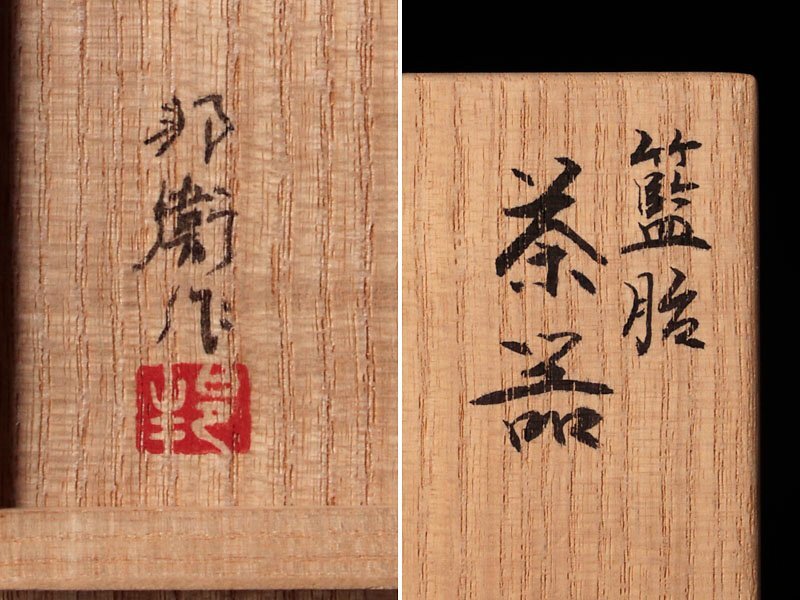 邦衛作
邦
籃胎
茶器